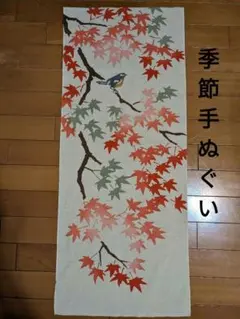 季節手ぬぐい